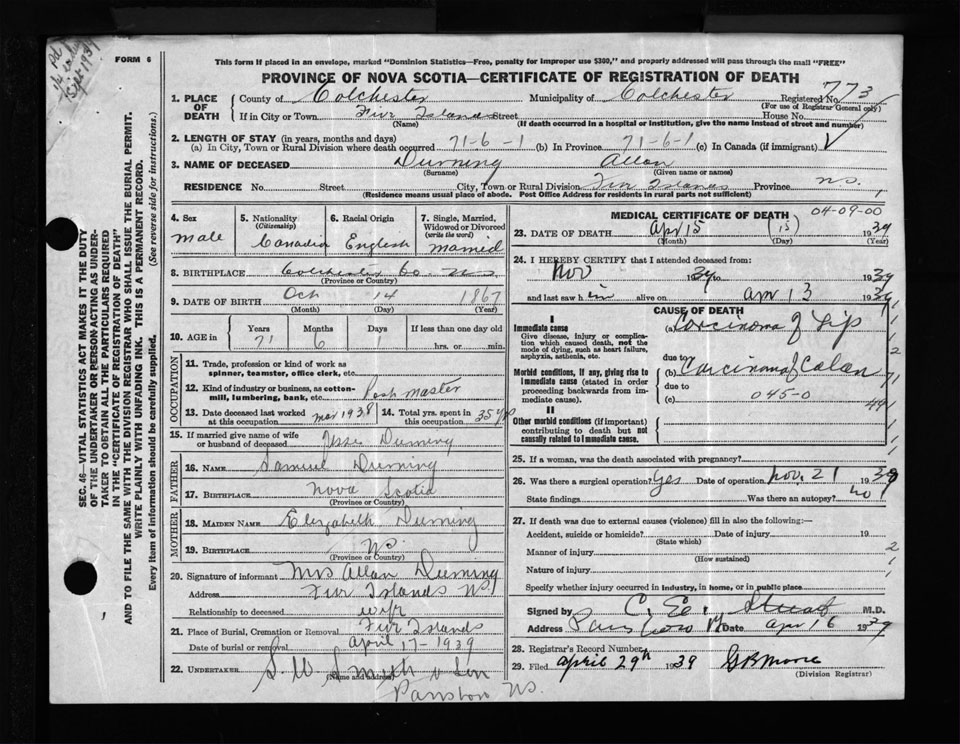 Sept 1939
FORM 6
This form if placed in an envelope, marked "Dominion Statistics—Free, penalty for improper use $300," and properly addressed will pass through the mail "FREE"
PROVINCE OF NOVA SCOTIA—CERTIFICATE OF REGISTRATION OF DEATH
SEC. 46—VITAL STATISTICS ACT MAKES IT THE DUTY
OF THE UNDERTAKER OR PERSON ACTING AS UNDER-
TAKER TO OBTAIN ALL THE PARTICULARS REQUIRED
IN THE "CERTIFICATE OF REGISTRATION OF DEATH"
AND TO FILE THE SAME WITH THE DIVISION REGISTRAR WHO SHALL ISSUE THE BURIAL PERMIT.
WRITE PLAINLY WITH UNFADING INK. THIS IS A PERMANENT RECORD.
Every item of information should be carefully supplied. (See reverse side for instructions.)
1. PLACE OF DEATH County of Colchester Municipality of Colchester Registered No. 773
(For use of Registrar General only)
If in City or Town Five Islands Street House No.
(Name) (If death occurred in a hospital or institution, give the name instead of street and number)
2. LENGTH OF STAY (in years, months and days)
(a) In City, Town or Rural Division where death occurred 71-6-1 (b) In Province 71-6-1 (c) In Canada (if immigrant)
3. NAME OF DECEASED Durning Allan
(Surname) (Given name or names)
RESIDENCE No. Street City, Town or Rural Division Five Islands Province N.S.
(Residence means usual place of abode. Post Office Address for residents in rural parts not sufficient)
4. Sex Male
5. Nationality (Citizenship) Canadia
6. Racial Origin English
7. Single, Married, Widowed or Divorced (write the word) Married
8. BIRTHPLACE Colchester Co. N.S.
(Province or Country)
9. DATE OF BIRTH Oct 14 1867
(Month) (Day) (Year)
10. AGE in Years 71 Months 6 Days 1 If less than one day old hrs. or min.
OCCUPATION
11. Trade, profession or kind of work as spinner, teamster, office clerk, etc.
12. Kind of industry or business, as cotton-mill, lumbering, bank, etc. Post master
13. Date deceased last worked at this occupation Mar 1938 14. Total yrs. spent in this occupation 35 yrs
15. If married give name of wife or husband of deceased Durning
FATHER
16. NAME Samuel Durning
17. BIRTHPLACE Nova Scotia
(Province or Country)
MOTHER
18. MAIDEN NAME Elizabeth Durning
19. BIRTHPLACE N.S.
(Province or Country)
20. Signature of informant Mrs Allan Durning
Address Five Islands N.S.
Relationship to deceased wife
21. Place of Burial, Cremation or Removal Five Islands
Date of burial or removal April 17-1939
22. UNDERTAKER S.W. Smith & Son
(Name and address)
Parrsboro N.S.
MEDICAL CERTIFICATE OF DEATH 04-09-00
23. DATE OF DEATH Apr 15 (15) 1939
(Month) (Day) (Year)
24. I HEREBY CERTIFY that I attended deceased from:
Nov 1939 to 1939
and last saw him alive on Apr 13 1939
CAUSE OF DEATH
I
Immediate cause
Give disease, injury or complication which caused death, not the mode of dying, such as heart failure, asphyxia, asthenia, etc.
(a) Carcinoma of Lip
due to
Morbid conditions, if any, giving rise to immediate cause (stated in order proceeding backwards from immediate cause).
(b) Carcinoma of Colon
due to
(c) 045-0
II
Other morbid conditions (if important) contributing to death but not causally related to immediate cause.
25. If a woman, was the death associated with pregnancy?
26. Was there a surgical operation? Yes Date of operation Nov. 21 1938
State findings Was there an autopsy? No
27. If death was due to external causes (violence) fill in also the following:—
Accident, suicide or homicide? Date of injury 19
(State which)
Manner of injury
(How sustained)
Nature of injury
Specify whether injury occurred in industry, in home, or in public place
Signed by C. E. Stuart M.D.
Address Date Apr 16 1939
28. Registrar's Record Number
29. Filed April 29th 1939 G B Moore
(Division Registrar)